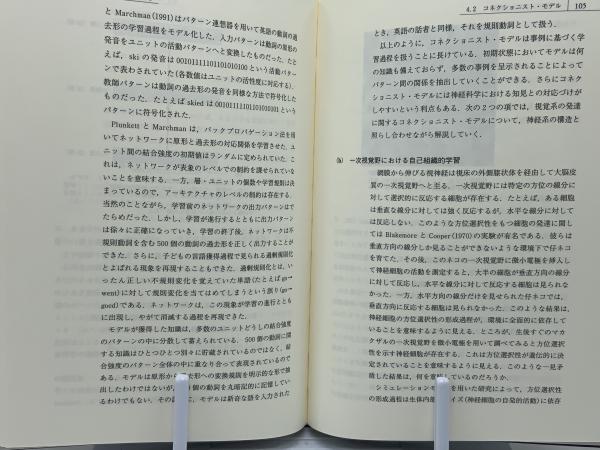 と Marchman (1991) はパターン連想器を用いて英語の動詞の過
去形の学習過程をモデル化した．入力パターンは動詞の原形の
発音をユニットの活動パターンへと変換したものだった．たと
えば，ski の発音は
ンで表わされていた (各数値はユニットの活性度に対応する)．
教師パターンは動詞の過去形の発音を同様な方法で符号化した
ものだった．たとえば skied は
パターンに符号化された．
Plunkett と Marchman は，バックプロパゲーション法を用
いてネットワークに原形と過去形の対応関係を学習させた．ユ
ニット間の結合強度の初期値はランダムに定められていた．こ
れは，ネットワークが表象のレベルでの制約を課せられていな
いことを意味する．一方，層・ユニットの個数や学習規則は決
まっているので，アーキテクチャのレベルの制約は存在する．
当然のことながら，学習前のネットワークの出力パターンはで
たらめだった．しかし，学習が進行するとともに出力パターン
は徐々に正確になっていき，学習の終了後，ネットワークは不
規則動詞を含む 500 個の動詞の過去形を正しく出力することが
できた．さらに，子どもの言語獲得過程で見られる過剰規則化
とよばれる現象を再現することもできた．過剰規則化とは，い
ったん正しい不規則変化を覚えていた単語 (たとえば go→
went) に対して規則変化を当てはめてしまうという誤り (go→
goed) である．ネットワークは，この現象が学習の進行ととも
に出現し，やがて消滅する過程を再現できた．
モデルが獲得した知識は，多数のユニットどうしの結合強度
のパターンの中に分散して蓄えられている．500 個の動詞に関
する知識はひとつひとつ別々に貯蔵されているのではなく，結
合強度のパターン全体の中に重なり合って表現されているので
ある．モデルは原形から 去形への変換規則を明示的な形で抽
出したわけではないが， 個の動詞を丸暗記的に記憶してい
るわけでもない．その に，モデルは新奇な語を入力された
4.2 コネクショニスト・モデル 105
とき，英語の話者と同様，それを規則動詞として扱う．
以上のように，コネクショニスト・モデルは事例に基づく学
習過程を扱うことに長けている．初期状態においてモデルは何
の知識も備えておらず，多数の事例を呈示されることによって
パターン間の関係を抽出していくことができる．さらにコネク
ショニスト・モデルには神経科学における知見との対応づけが
しやすいという利点もある．次の 2 つの項では，視覚系の発達
に関するコネクショニスト・モデルについて，神経系の構造と
照らし合わせながら解説していく．
(b) 一次視覚野における自己組織的学習
網膜から伸びる視神経は視床の外側膝状体を経由して大脳皮
質の一次視覚野へと至る．一次視覚野には特定の方位の線分に
対して選択的に反応する細胞が存在する．たとえば，ある細胞
は垂直な線分に対しては強く反応するが，水平な線分に対して
は反応しない．このような方位選択性をもつ細胞の発達に関し
ては Blakemore と Cooper (1970) の実験が有名である．彼らは
垂直方向の線分しか見ることができないような環境下で仔ネコ
を育てた．その後，このネコの一次視覚野に微小電極を挿入し
て神経細胞の活動を測定すると，大半の細胞が垂直方向の線分
に対して反応し，水平方向の線分に反応する細胞は見られな
かった．一方，水平方向の線分だけを見せられた仔ネコでは，
垂直方向に反応する細胞は見られなかった．このような結果は，
神経細胞の方位選択性の形成過程が，環境に全面的に依存して
いることを意味するように見える．ところが，生後すぐのマカ
クザルの一次視覚野を微小電極を用いて調べてみると方位選択
性を示す神経細胞が存在する．これは方位選択性が遺伝的に決
定されていることを意味するように見える．このような一見矛
盾した結果は，何を意 しているのだろうか．
シミュレーション を用いた研究によって，方位選択性
の形成過程は生体内部 イズ (神経細胞の自発的活動) に依存